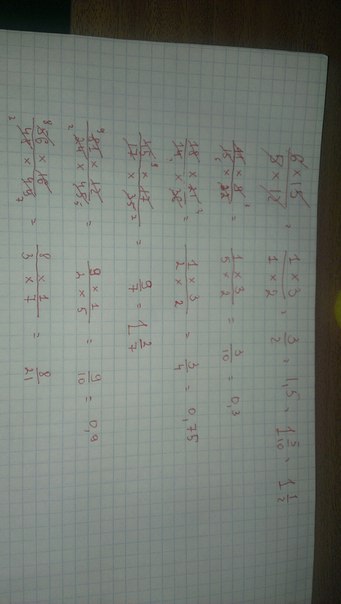 6 × 15 / 5 × 12 = 1 × 3 / 1 × 2 = 3/2 = 1,5 = 1 5/10 = 1 1/2
11 × 9 / 15 × 22 = 1 × 3 / 5 × 2 = 3/10 = 0,3
18 × 21 / 14 × 36 = 1 × 3 / 2 × 2 = 3/4 = 0,75
45 × 17 / 17 × 35 = 9/7 = 1 2/7
81 × 12 / 24 × 45 = 9 × 1 / 2 × 5 = 9/10 = 0,9
56 × 16 / 48 × 49 = 8 × 1 / 3 × 7 = 8/21